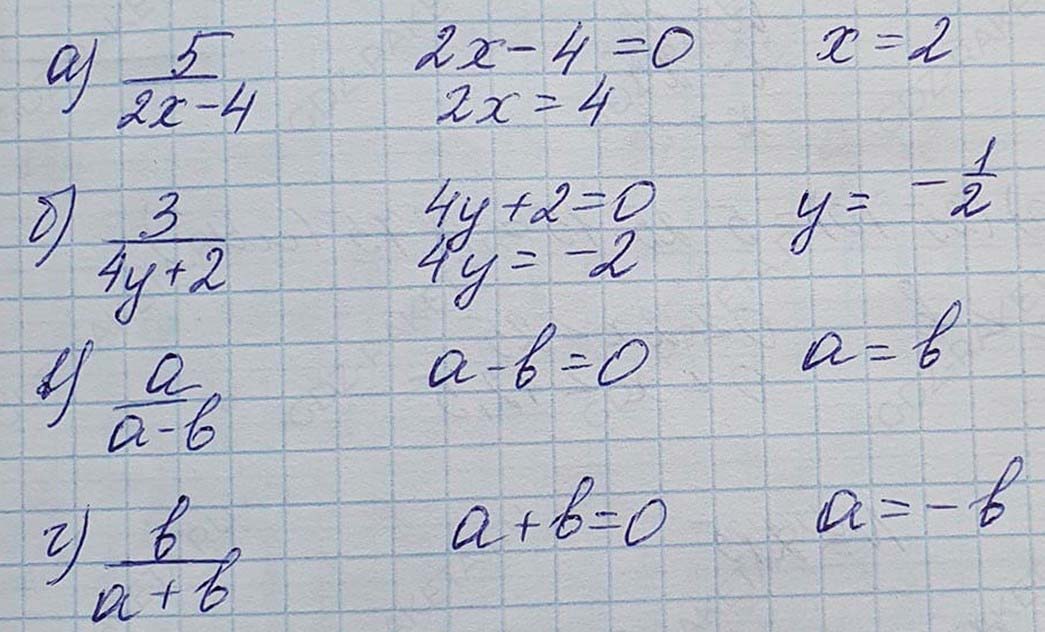 а) 5/(2x-4) 2x-4=0 x=2
2x=4
б) 3/(4y+2) 4y+2=0 y= -1/2
4y=-2
в) a/(a-b) a-b=0 a=b
г) b/(a+b) a+b=0 a=-b